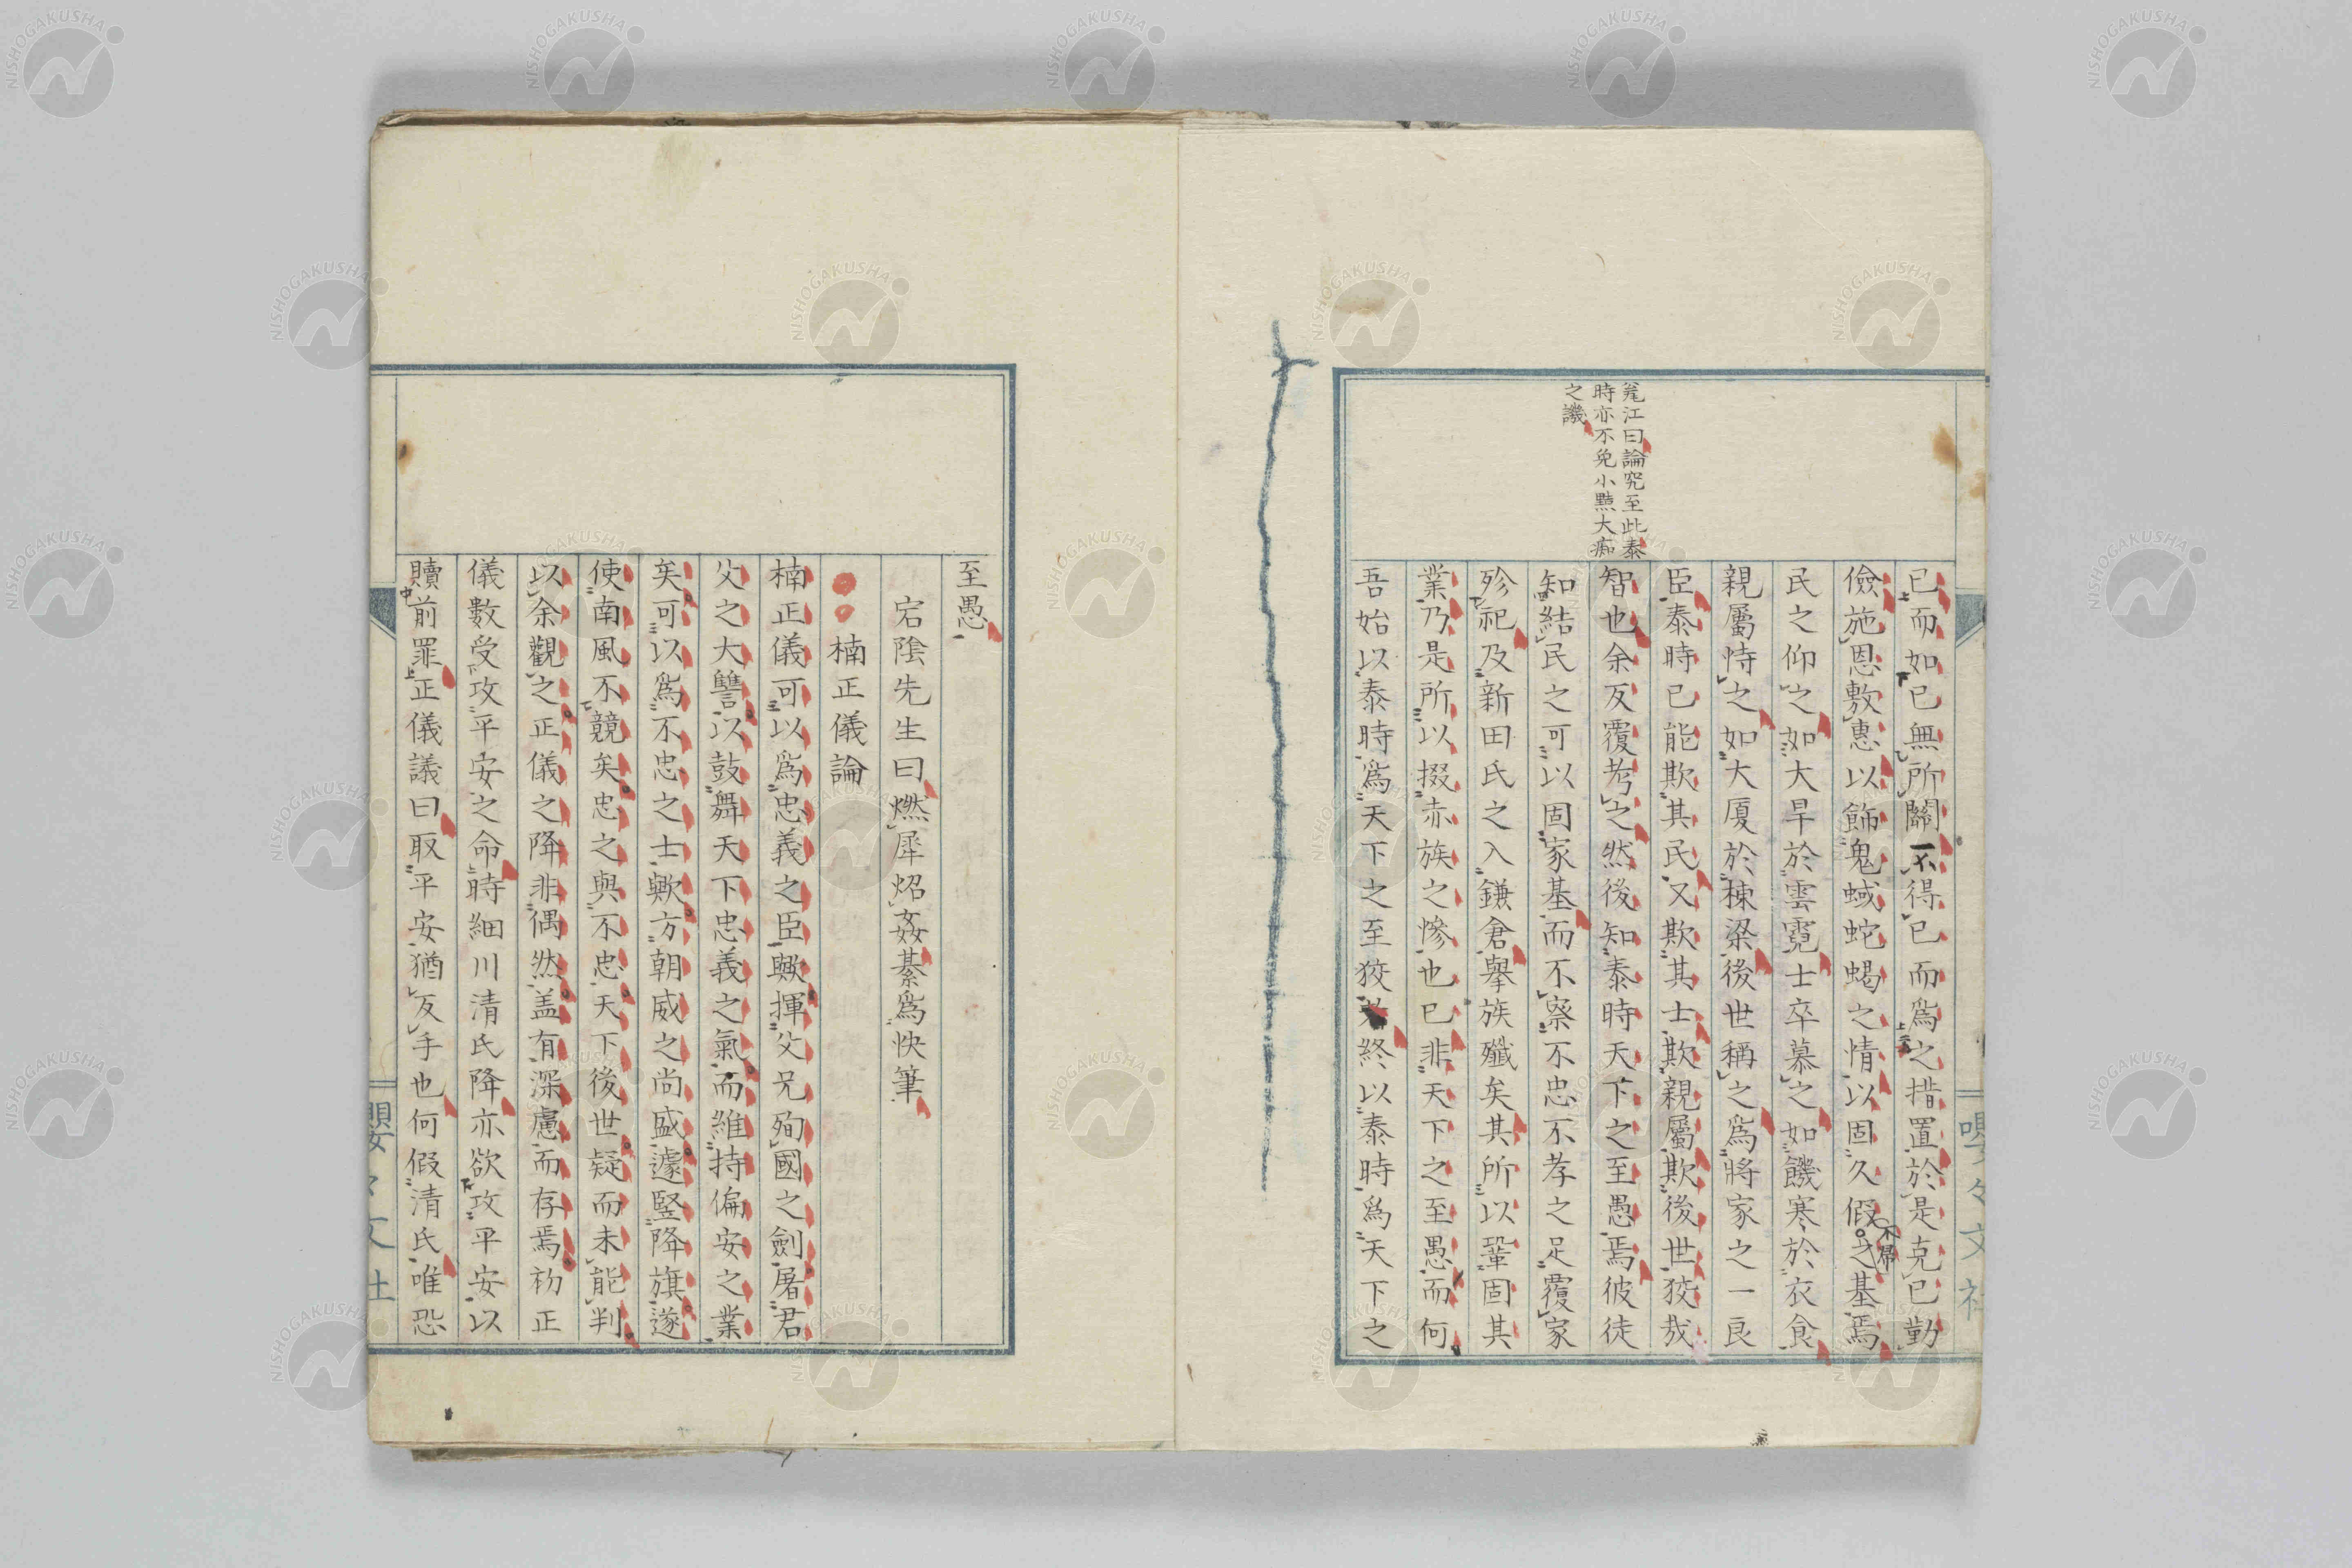 毣江曰論究至此泰
時亦不免小黠大痴
之譏
已而如已無所闢不得已而爲之措置於是克已勤
儉施恩敷惠以飾鬼蜮蛇蝎之情以固久假不帰之基焉
民之仰之如大旱於雲霓士卒慕之如饑寒於衣食
親屬恃之如大厦於棟梁後世稱之爲將家之一良
臣泰時已能欺其民又欺其士欺親屬欺後世狡哉
智也余反覆考之然後知泰時天下之至愚焉彼徒
知結民之可以固家基而不察不忠不孝之足覆家
殄祀及新田氏之入鎌倉擧族殲矣其所以鞏固其
業乃是所以掇赤族之慘也已非天下之至愚而何
吾始以泰時爲天下之至狡終以泰時爲天下之
嚶々文社
至愚
宕陰先生曰燃犀炤姦綦爲快筆
楠正儀論
楠正儀可以爲忠義之臣歟揮父兄殉國之劍屠君
父之大讐以鼓舞天下忠義之氣而維持偏安之業
矣可以爲不忠之士歟方朝威之尚盛遽竪降旗遂
使南風不競矣忠之與不忠天下後世疑而未能判
以余觀之正儀之降非偶然盖有深慮而存焉初正
儀數受攻平安之命時細川清氏降亦欲攻平安以
贖前罪正儀議曰取平安猶反手也何假清氏唯恐
嚶々文社
NISHOGAKUSHA